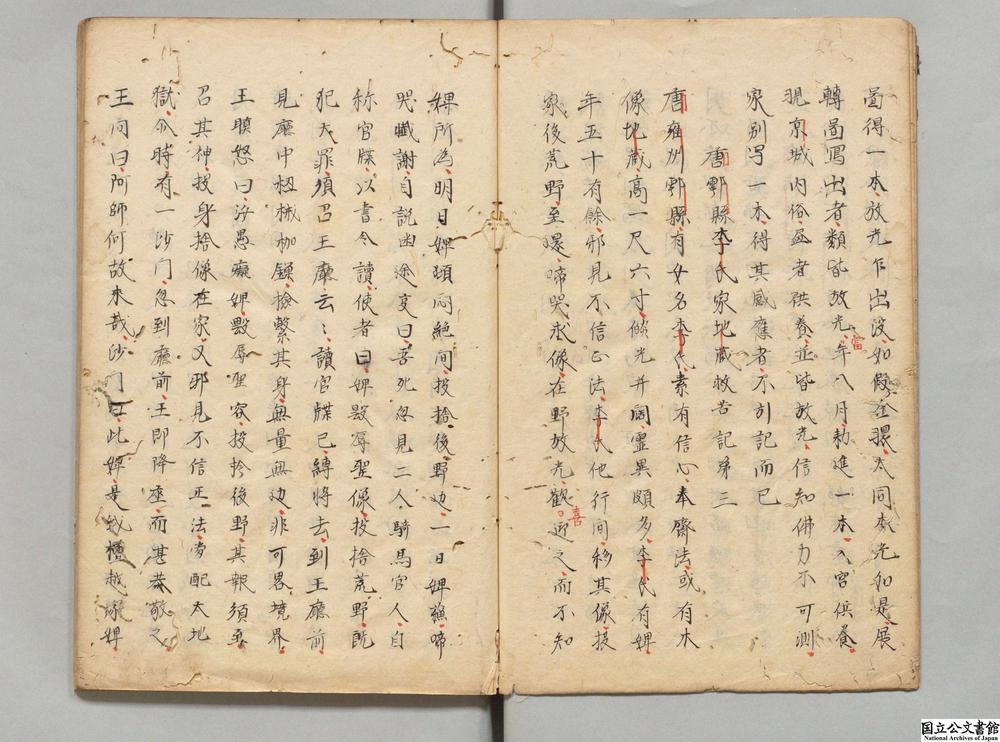 啚得一本放光乍出没如假在眼太同本光如是展
轉啚寫出者類皆放光當年八月勅進一本入宮供養
現京城内俗盃者供養並皆放光信知佛力不可測
家別写一本得其感應者不別記而已
唐鄠縣李氏家地蔵救苦記第三
唐雍州鄠縣有女名李氏素有信心奉齋法或有木
像地蔵高一尺六寸倏光并同靈異頗多李氏有婢
年五十有餘邪見不信正法李氏他行間移其像投
家後荒野至還啼哭求像在野放光歡喜迎之而不知
婢所為明日婢頓悶絶間投捨後野边一日婢穌啼
哭懴謝自説幽途㕝曰吾死忽見二人騎馬官人自
称官牒以書令讀使者曰婢毀辱聖像投捨荒野既
犯大罪須召王廳云々讀官牒已縛將去到王廳前
見廳中杻械枷鏁撿繫其身無量無边非可畧境界
王瞋怒曰汝愚癡婢毀辱聖容投捨後野其報須至
召其神投身捨像在家又邪見不信正法當配大地
獄尒時有一沙门忽到廳前王即降座而甚恭敬之
王问曰阿師何故来哉沙门曰此婢是我檀越家婢
国立公文書館
National Archives of Japan